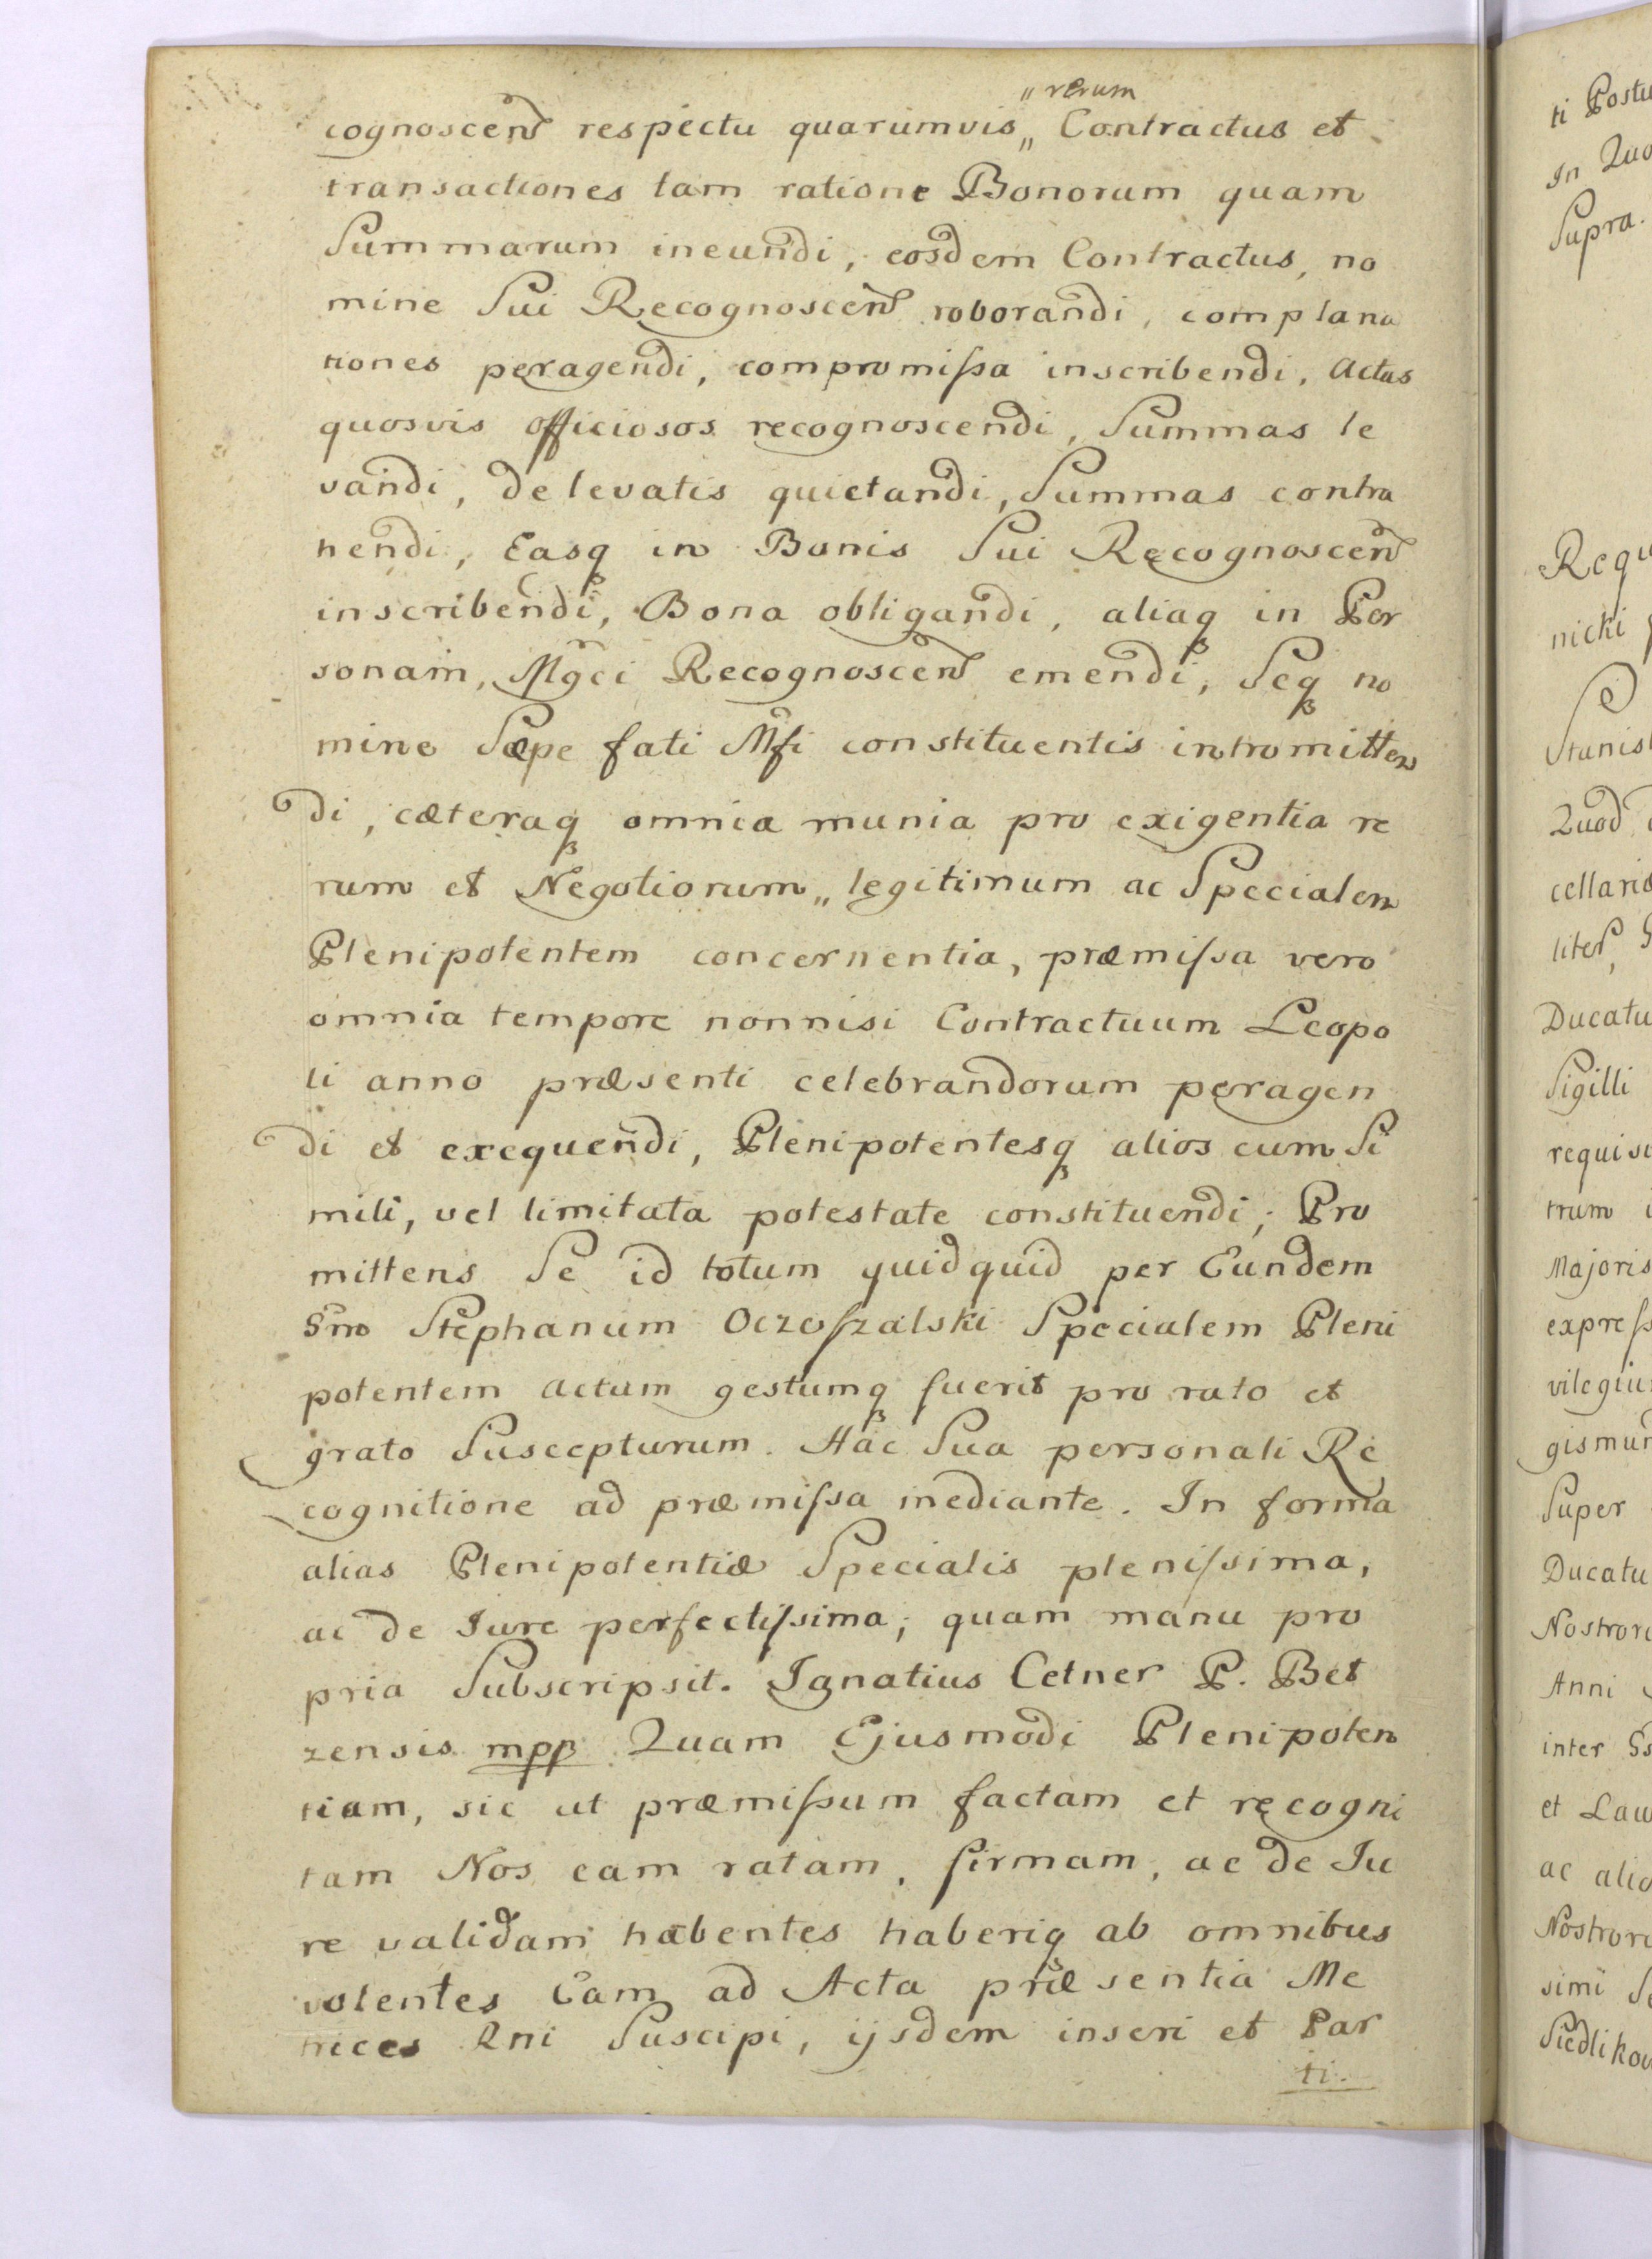 „ rerum
cognoscen̄ respectu quarumvis „ Contractus et
transactiones tam ratione Bonorum quam
Summarum ineundi, eosdem Contractus, no
mine Sui Recognoscen̄ roborandi, complana
tiones peragendi, compromiſsa inscribendi, actus
quosvis officiosos recognoscendi, Summas le
vandi, de levatis quietandi, Summas contra
hendi, Easq in Bonis Sui Recognoscen̄
inscribendi, Bona obligandi, aliaq in Per
sonam, Mgci Recognoscen̄ emendi, Seq no
mine Sæpe fati Mfi constituentis intromitten
di, cæteraq omnia munia pro exigentia re
rum et Negotiorum „ legitimum ac Specialem
Plenipotentem concernentia, præmiſsa vero
omnia tempore nonnisi Contractuum Leopo
li anno præsenti celebrandorum peragen
di et exequendi, Plenipotentesq alios cum Si
mili, vel limitata potestate constituendi; Pro
mittens Se id totum quidquid per Eundem
Gm̄ Stephanum Oczoſzalski Specialem Pleni
potentem actum gestumq fuerit pro rato et
grato Suscepturum. Hac Sua personali Re
cognitione ad præmiſsa mediante. In forma
alias Plenipotentiæ Specialis pleniſsima,
ac de Iure perfectiſsima; quam manu pro
pria Subscripsit. Ignatius Cetner P. Bet
zensis mpp Quam Ejusmodi Plenipoten
tiam, sic ut præmiſsum factam et recogni
tam Nos eam ratam, firmam, ac de Iu
re validam habentes haberiq ab omnibus
volentes Eam ad Acta præsentia Me
trices Rni Suscipi, ijsdem inseri et Par
ti.
ti Postu
In Quo
Supra.
Requ
nicki
Stanisl
Quod
cellariæ
liter,
Ducatu
Sigilli
requisi
trum
Majoris
expreſs
vilegiu
gismun
Super
Ducatu
Nostror
Anni
inter Gs
et Law
ac alio
Nostror
simi Se
Siedlikow